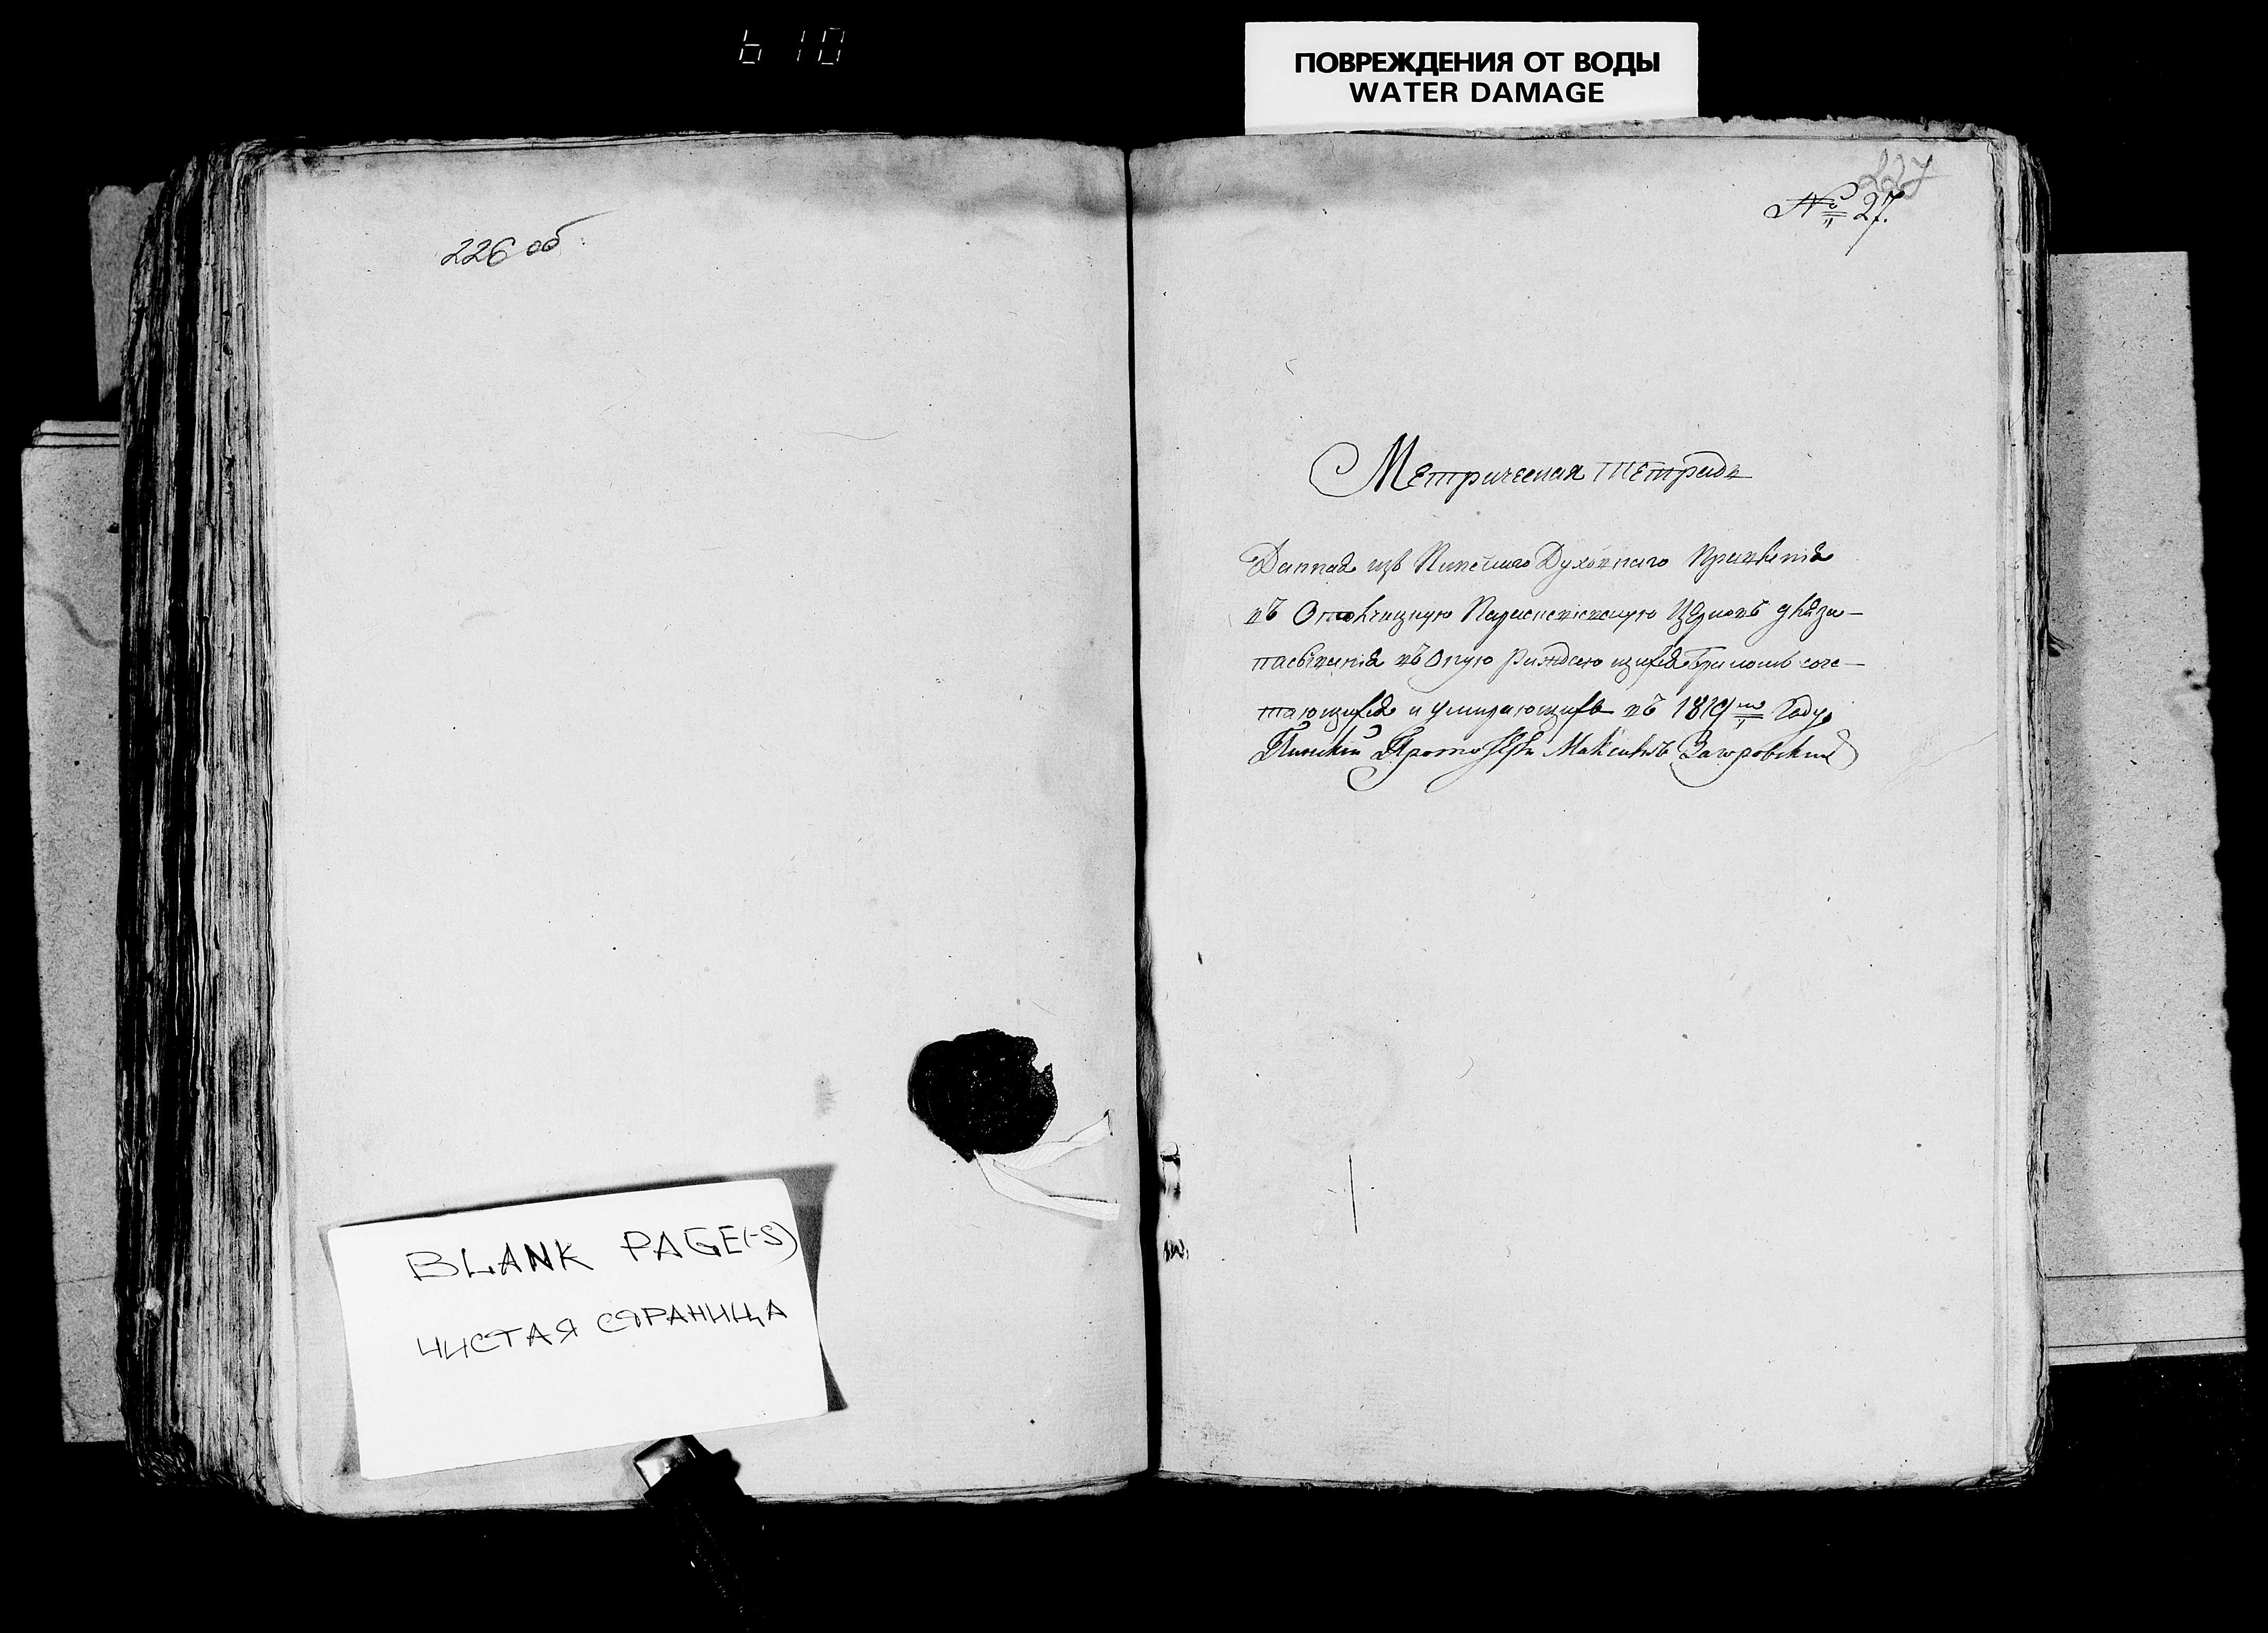 610
ПОВРЕЖДЕНИЯ ОТ ВОДЫ
WATER DAMAGE
226 об
227
№ 27.
Метрическая тетрадь
Данная изъ Пинскаго Духовнаго Правленія
въ Парасковіевскую Церковь для за-
въ оную раждающихся бракомъ соче-
тающихся и умирающихъ въ 1819мъ Году
Пинскій Протоіерей
BLANK PAGE(-S)
ЧИСТАЯ СТРАНИЦА